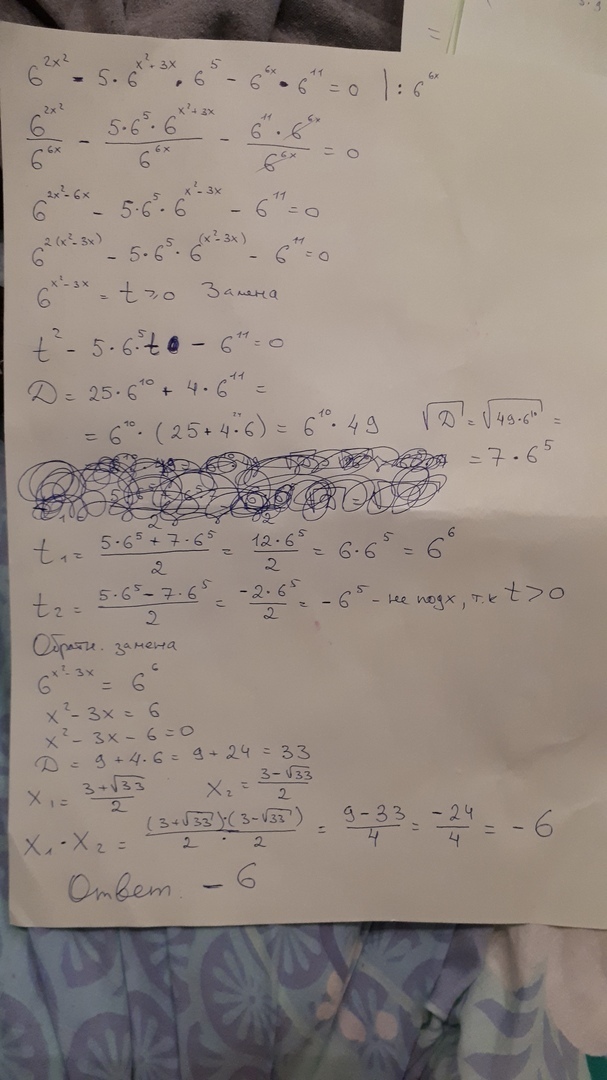 6^{2x²} - 5·6^{x²-3x}·6^5 - 6^{6x}·6^{11} = 0 |: 6^{6x}
6^{2x²}/6^{6x} - 5·6^5·6^{x²+3x}/6^{6x} - 6^{11}·6^{6x}/6^{6x} = 0
6^{2x²-6x} - 5·6^5·6^{x²-3x} - 6^{11} = 0
6^{2(x²-3x)} - 5·6^5·6^{(x²-3x)} - 6^{11} = 0
6^{x²-3x} = t > 0 Замена
t² - 5·6^5 t - 6^{11} = 0
D = 25·6^{10} + 4·6^{11} =
= 6^{10}·(25+4·6) = 6^{10}·49 √D = √(49·6^{10}) =
= 7·6^5
t₁ = (5·6^5 + 7·6^5)/2 = 12·6^5/2 = 6·6^5 = 6^6
t₂ = (5·6^5 - 7·6^5)/2 = -2·6^5/2 = -6^5 - не подх, т.к t > 0
Обратн. замена
6^{x²-3x} = 6^6
x² - 3x = 6
x² - 3x - 6 = 0
D = 9 + 4·6 = 9 + 24 = 33
x₁ = (3+√33)/2 x₂ = (3-√33)/2
x₁·x₂ = (3+√33)·(3-√33)/2·2 = (9-33)/4 = -24/4 = -6
Ответ. -6